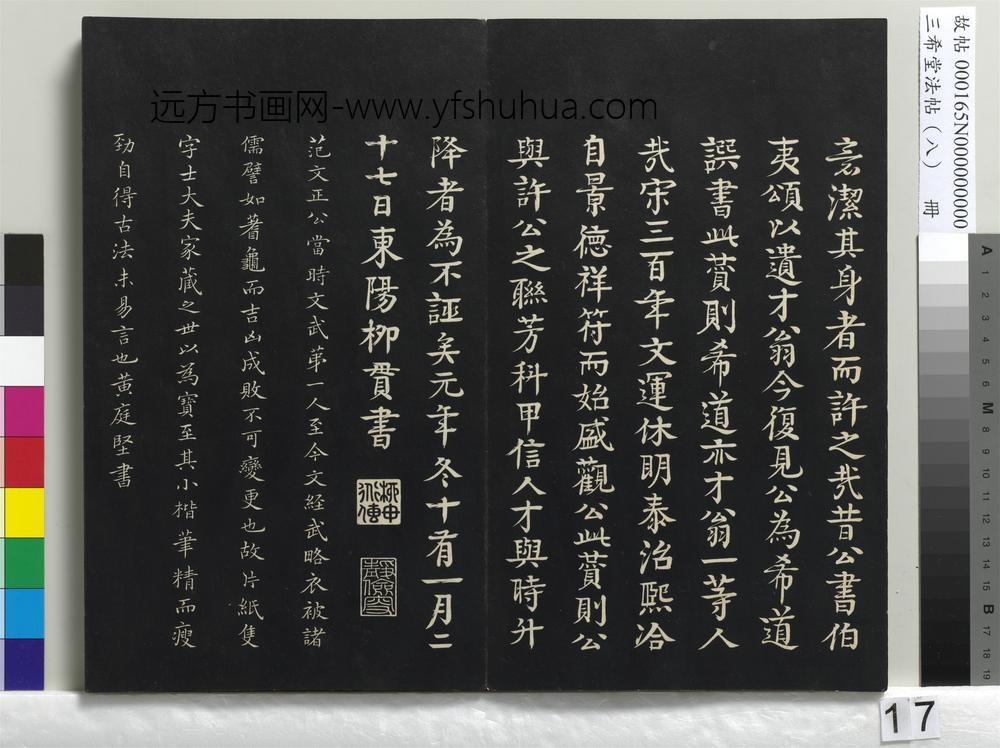 言潔其身者而許之哉昔公書伯
夷頌以遺才翁今復見公為希道
譔書此薲則希道亦才翁一等人
哉宋三百年文運休明泰治熙洽
自景德祥符而始盛觀公此薲則公
與許公之聯芳科甲信人才與時升
降者為不誣矣元年冬十有一月二
十七日東陽柳貫書
范文正公當時文武苐一人至今文経武略衣被諸
儒譬如蓍龜而吉凶成敗不可變更也故片紙隻
字士大夫家藏之世以為寶至其小楷筆精而瘦
勁自得古法未易言也黃庭堅書
远方书画网-www.yfshuhua.com
故帖 000165N000000000
三希堂法帖(八) 冊
17
A 1 2 3 4 5 6 M 8 9 10 11 12 13 14 15 B 17 18 19